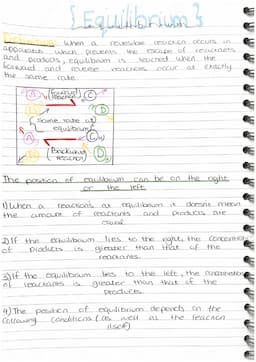 [Equilibrium}
When a reversible reaction occurs in
apparatus which prevents the escape of reactants
and products, equilibrium is reached when the
forward and reverse reactions occur at exactly
the same rate
A (Forward reaction) C
B D
{Same rate at equilibrium}
A C
B (Backward reaction) D
The position of equilibrium can be on the right
or the left
1) When a reaction's at equilibrium it doesn't mean
the amount of reactants and products are
equal
2) If the equilibrium lies to the right, the concentration
of products is greater than that of the
reactants.
3) If the equilibrium lies to the left, the concentration
of reactants is greater than that of the
products.
4) The position of equilibrium depends on the
following conditions (as well as the reaction
itself)